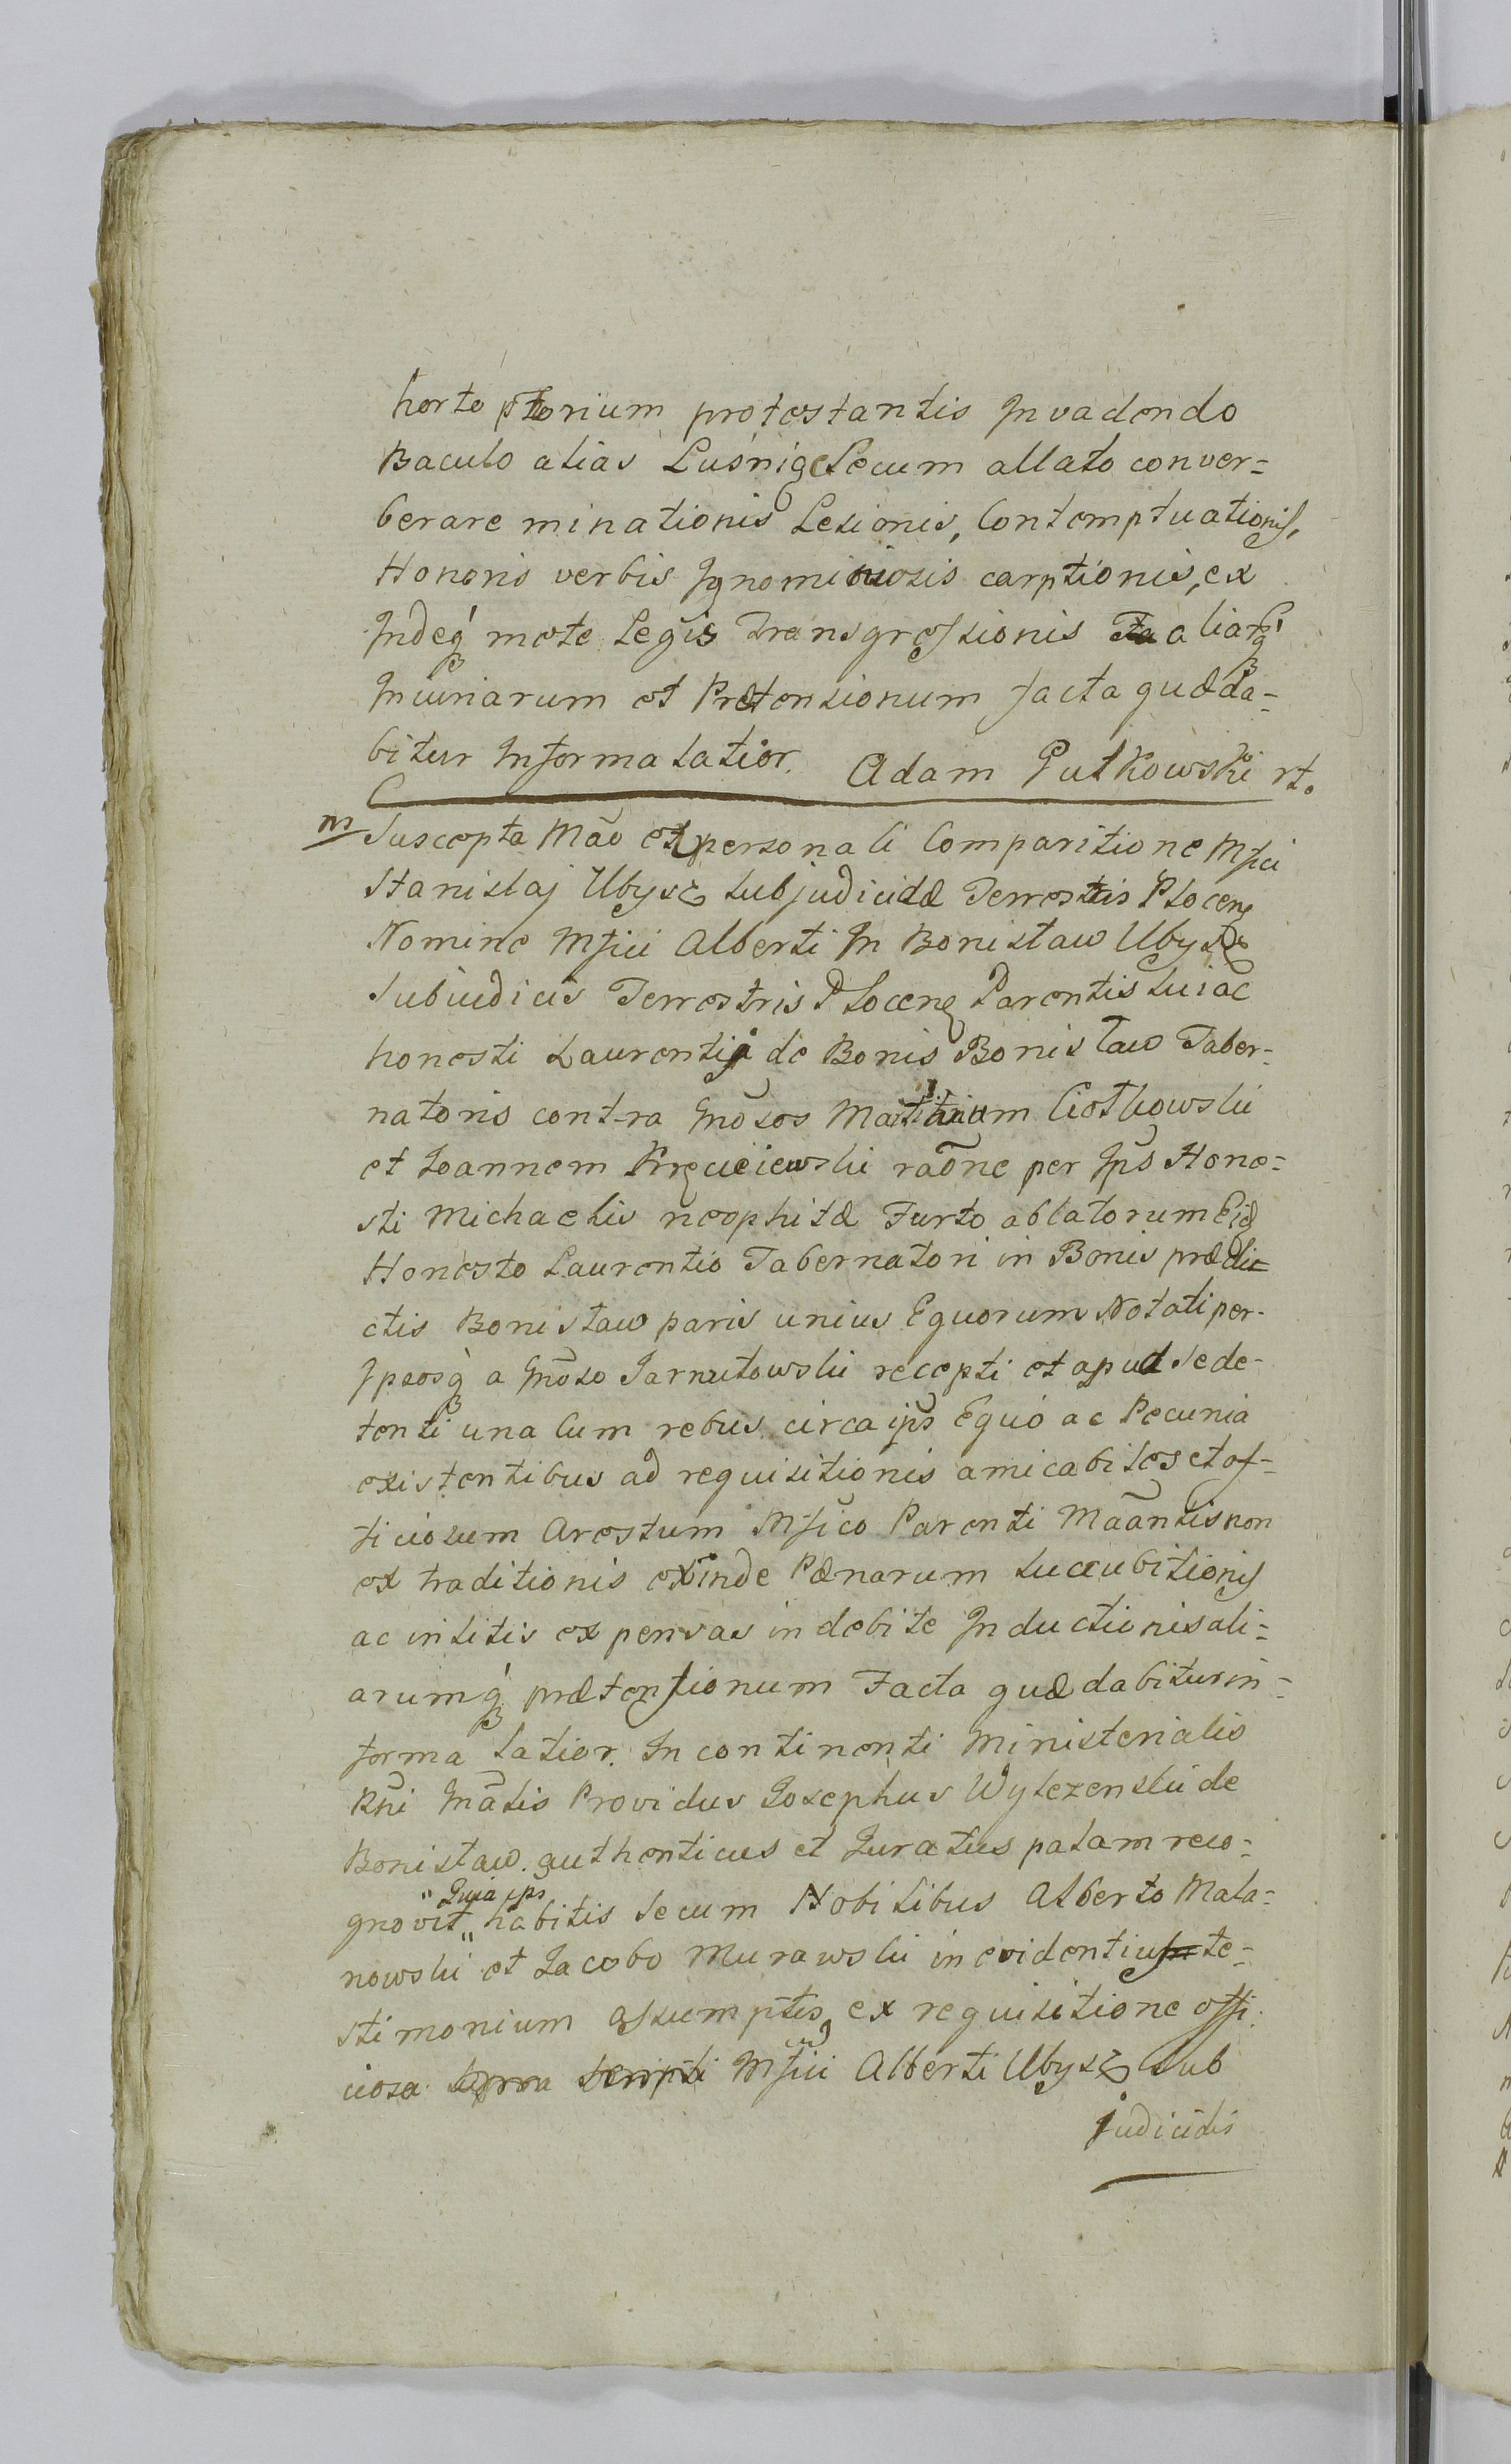 horto ptorium protestantis Invadendo
Baculo alias Luśnią Secum allato conver=
berare minationis Lesionis, Contemptuationis,
Honoris verbis Ignominiosis carptionis, ex
Indeq́ mote Legis Transgressionis aliarq́
Iniuriarum et Prætensionum facta quæ da=
bitur Informa latior. Adam Putkowski rt.
m Suscepta Mão et personali Comparitione Mfici
Stanislaj Ubysz Subjudicidæ Terrestris Plocen
Nomine Mfici Alberti In Bonisław Ubysz
Subiudicis Terrestris Plocen Parentis Sui ac
honesti Laurentij de Bonis Bonisław Taber=
natoris contra Gnõsos Ciotkowski
et Joannem raõne per Ips Hone=
sti Michaelis neophitæ Furto ablatorum Eid
Honesto Laurentio Tabernatori in Bonis prædi=
ctis Bonisław paris unius Equorum Notati per-
Ipsosq́ a Gnõso Jarnutowski recepti et apud se de-
tenti una Cum rebus circa ips Equo ac Pecunia
existentibus ad requisitionis amicabiles et of-
ficiosum Arestum Mfico Parenti Mãantis non
ex traditionis exinde Pænarum Succubitionis
ac in litis expensas indebite Inductionis ali=
arumq́ prætensionum Facta quæ dabitur in=
forma latior. In continenti Ministerialis
Rñi Gnãlis Providus Josephus Wylezenski de
Bonisław. authenticus et Juratus palam reco=
"Quia ips
gnovit" habitis Secum Nobilibus Alberto Mala=
nowski et Jacobo Murawski in evidentius te=
stimonium assumptis, ex requisitione offi:
ciosa Mfici Alberti Ubysz Sub
judicidis